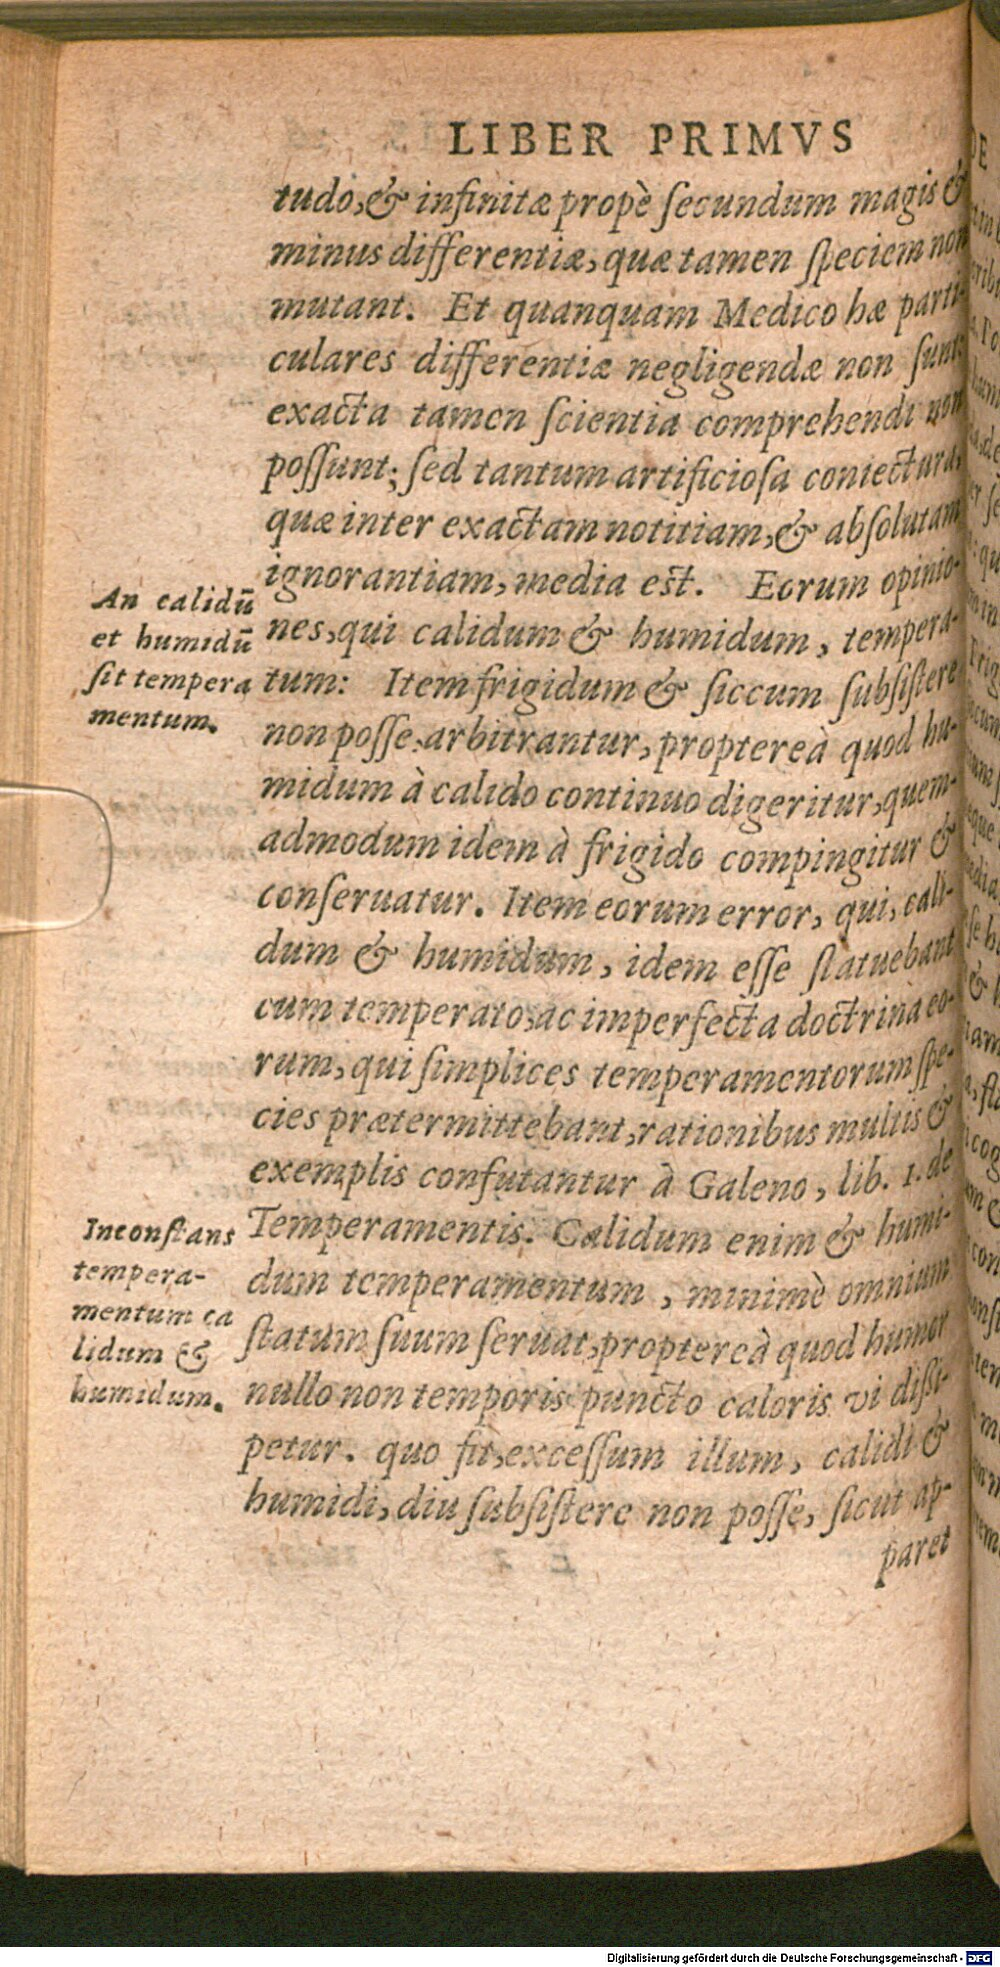 LIBER PRIMVS
tudo,& infinitæ propè ſecundum magis &
minus differentiæ, quæ tamen ſpeciem non
mutant. Et quanquam Medico hæ parti-
culares differentiæ negligendæ non ſunt:
exacta tamen ſcientia comprehendi non
poſſunt; ſed tantum artificioſa coniectura,
quæ inter exactam notitiam,& abſolutam
ignorantiam, media eſt. Eorum opinio-
nes, qui calidum & humidum, tempera-
tum: Item frigidum & ſiccum ſubſiſtere
non poſſe arbitrantur, proptereà quod hu-
midum à calido continuo digeritur, quem-
admodum idem à frigido compingitur &
conſeruatur. Item eorum error, qui, cali-
dum & humidum, idem eſſe ſtatuebant
cum temperato, ac imperfecta doctrina eo-
rum, qui ſimplices temperamentorum ſpe-
cies prætermittebant, rationibus multis &
exemplis confutantur à Galeno, lib. 1. de
Temperamentis. Calidum enim & humi-
dum temperamentum, minimè omnium
ſtatum ſuum ſeruat, proptereà quod humor
nullo non temporis puncto caloris vi diſſi-
petur. quo fit, exceſſum illum, calidi &
humidi, diu ſubſiſtere non poſſe, ſicut ap-
paret
An calidū
et humidū
ſit tempera
mentum.
Inconſtans
tempera-
mentum ca
lidum &
humidum.
Digitalisierung gefördert durch die Deutsche Forschungsgemeinschaft - DFG